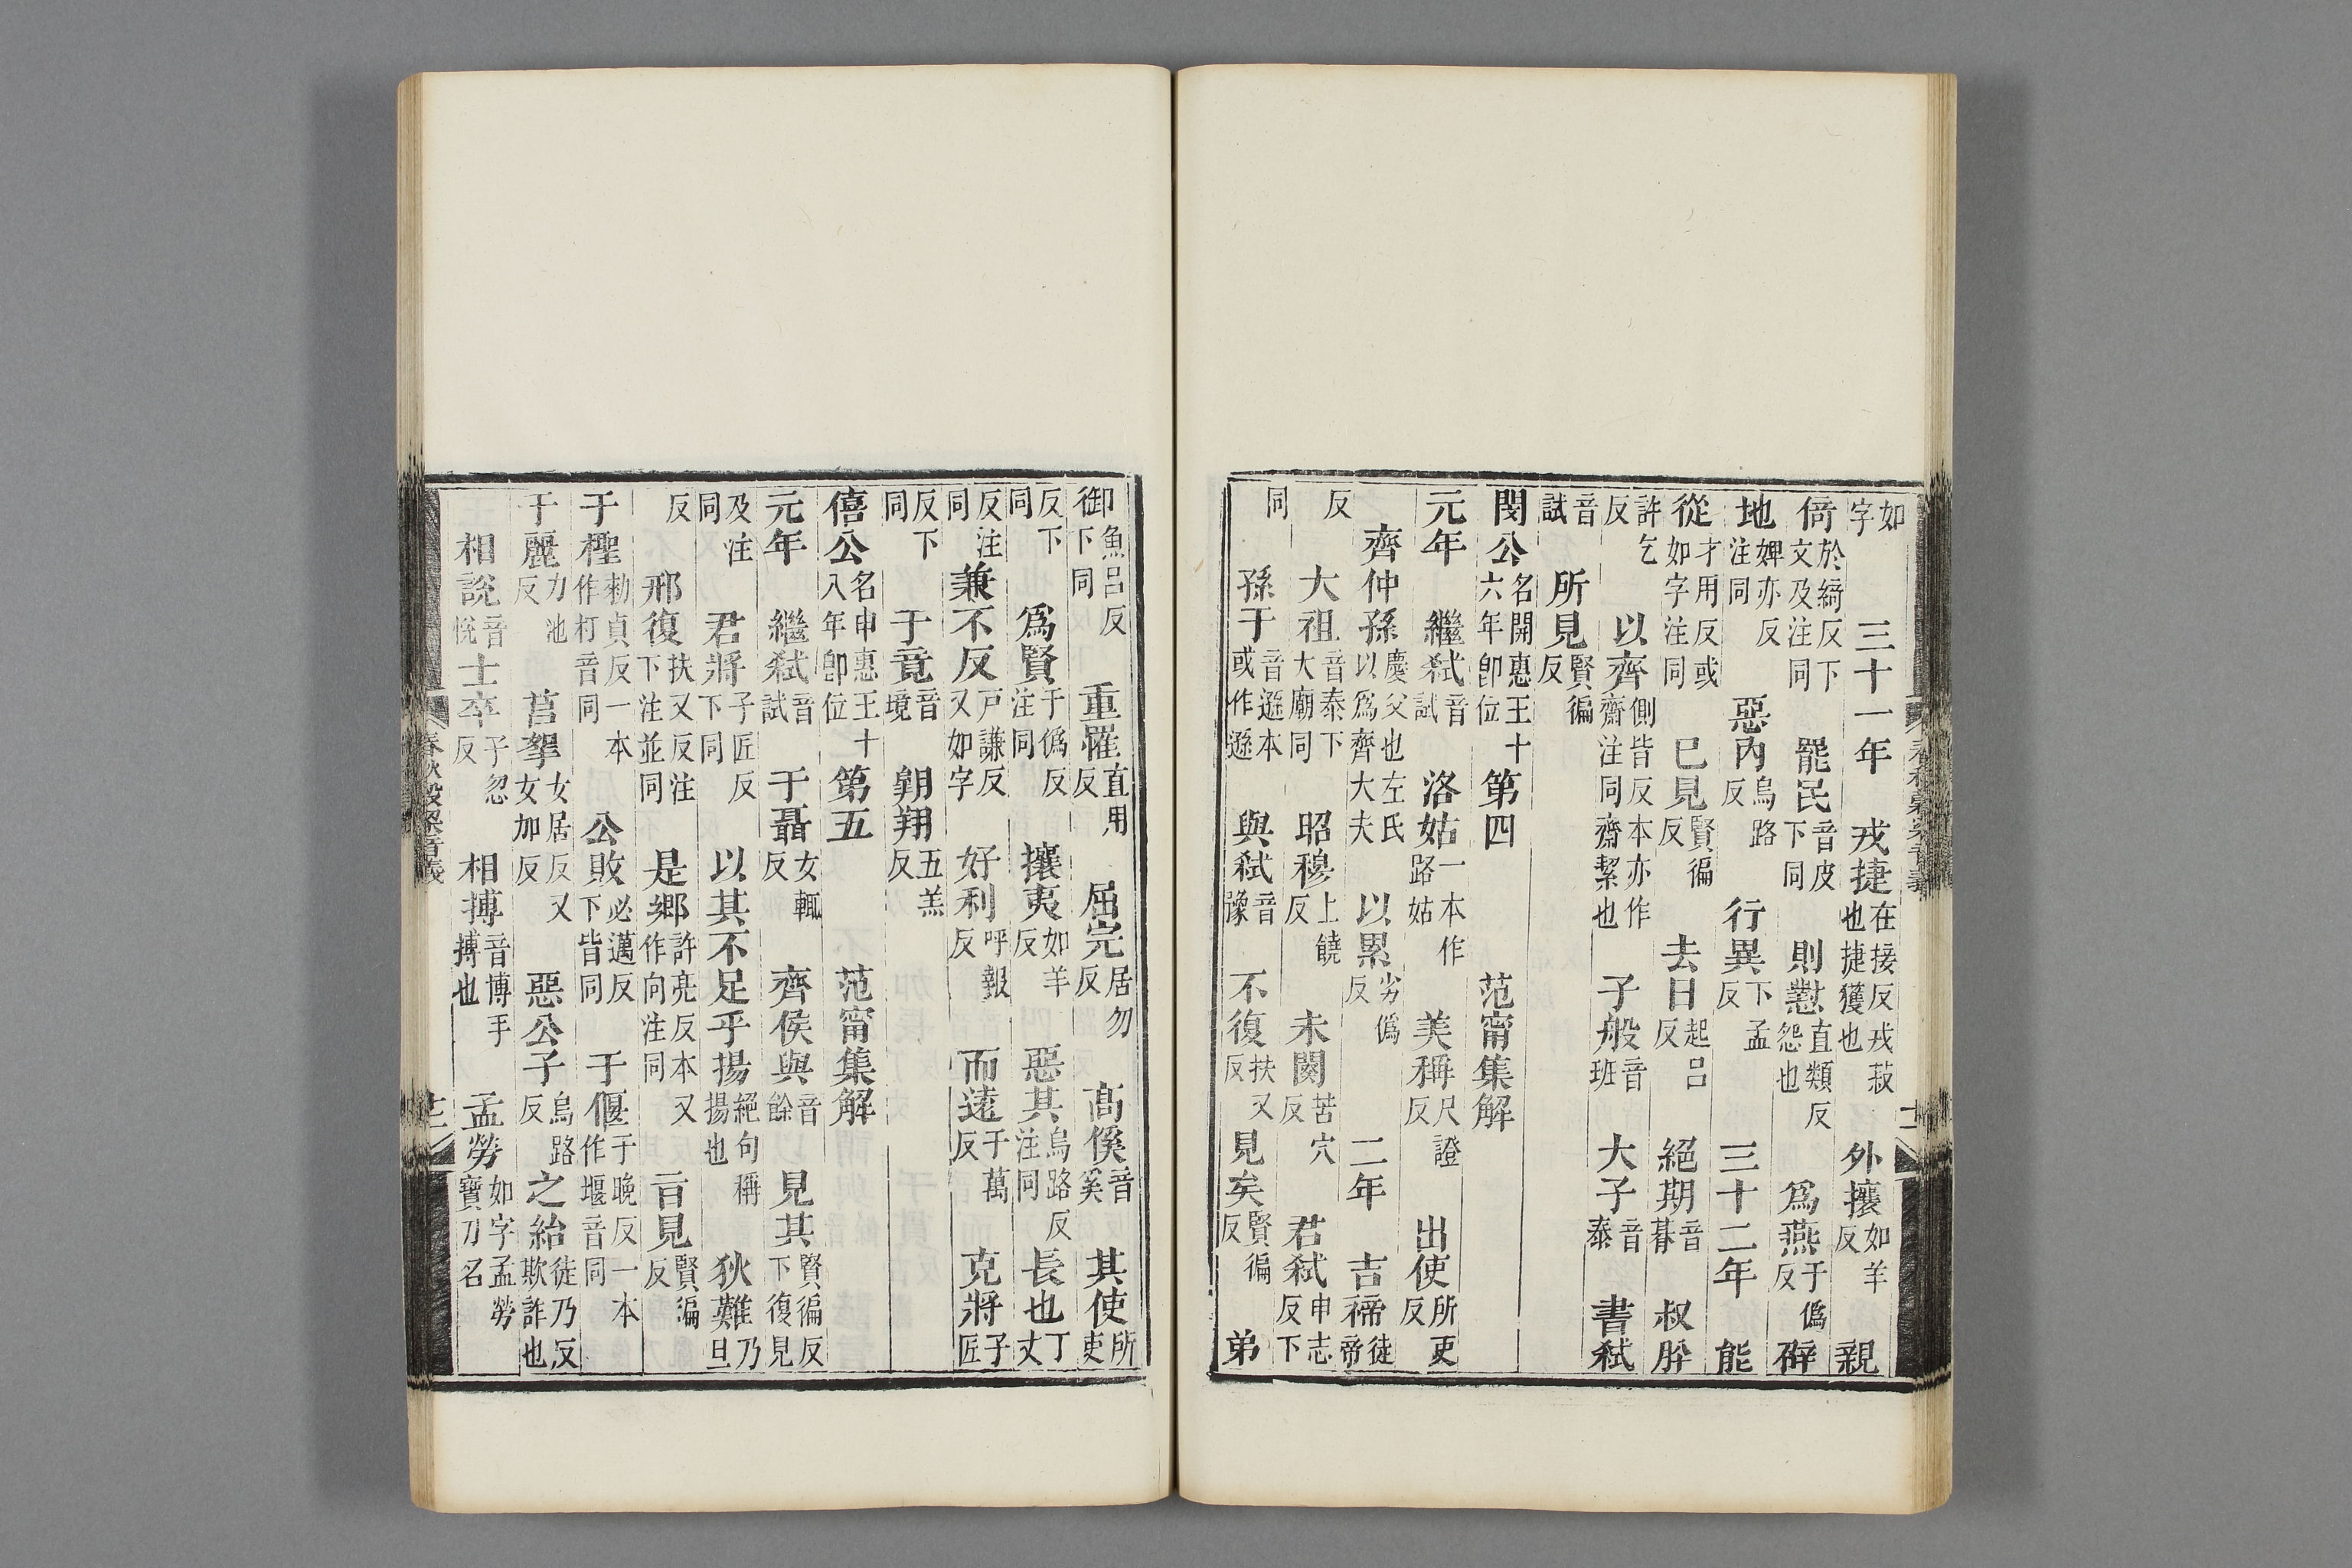 春秋穀梁音義
如字 三十一年 戎捷在接反戎菽也捷獲也 外攘如羊反 親
倚於綺反下文及注同 罷民音皮下同 則懟直類反怨也 爲燕于僞反 辟
地婢亦反注同 惡內烏路反 行異下孟反 三十二年 能
從才用反或如字注同 已見賢徧反 去日起呂反 絕期音朞 叔肸
許乞反 以齊側皆反本亦作齋注同齋絜也 子般音班 大子音泰 書弒
音試 所見賢徧反
閔公名開惠王十六年卽位 第四 范甯集解
元年 繼弒音試 洛姑一本作路姑 美稱尺證反 出使所吏反
齊仲孫慶父也左氏以爲齊大夫 以累劣僞反 二年 吉禘徒帝
反 大祖音泰下大廟同 昭穆上饒反 未闋苦穴反 君弒申志反下
同 孫于音遜本或作遜 與弒音豫 不復扶又反 見矣賢徧反 弟
御魚呂反下同 重罹直用反 屈完居勿反 高傒音奚 其使所吏
反下同 爲賢于僞反注同 攘夷如羊反 惡其烏路反注同 長也丁丈
反注同 兼不反戶謙反又如字 好利呼報反 而遠于萬反 克將子匠
反下同 于竟音境 翺翔五羔反
僖公名申惠王十八年卽位 第五 范甯集解
元年 繼弒音試 于聶女輒反 齊侯與音餘 見其賢徧反下復見
及注同 君將子匠反下同 以其不足乎揚絕句稱揚也 狄難乃旦
反 邢復扶又反注下注並同 是鄉許亮反本又作向注同 言見賢徧反
于檉勑貞反一本作朾音同 公敗必邁反下皆同 于偃于晚反一本作堰音同
于麗力池反 莒挐女居反又女加反 惡公子烏路反 之紿徒乃反欺詐也
相說音悅 士卒子忽反 相搏音博手搏也 孟勞如字孟勞寶刀名
春秋穀梁音義